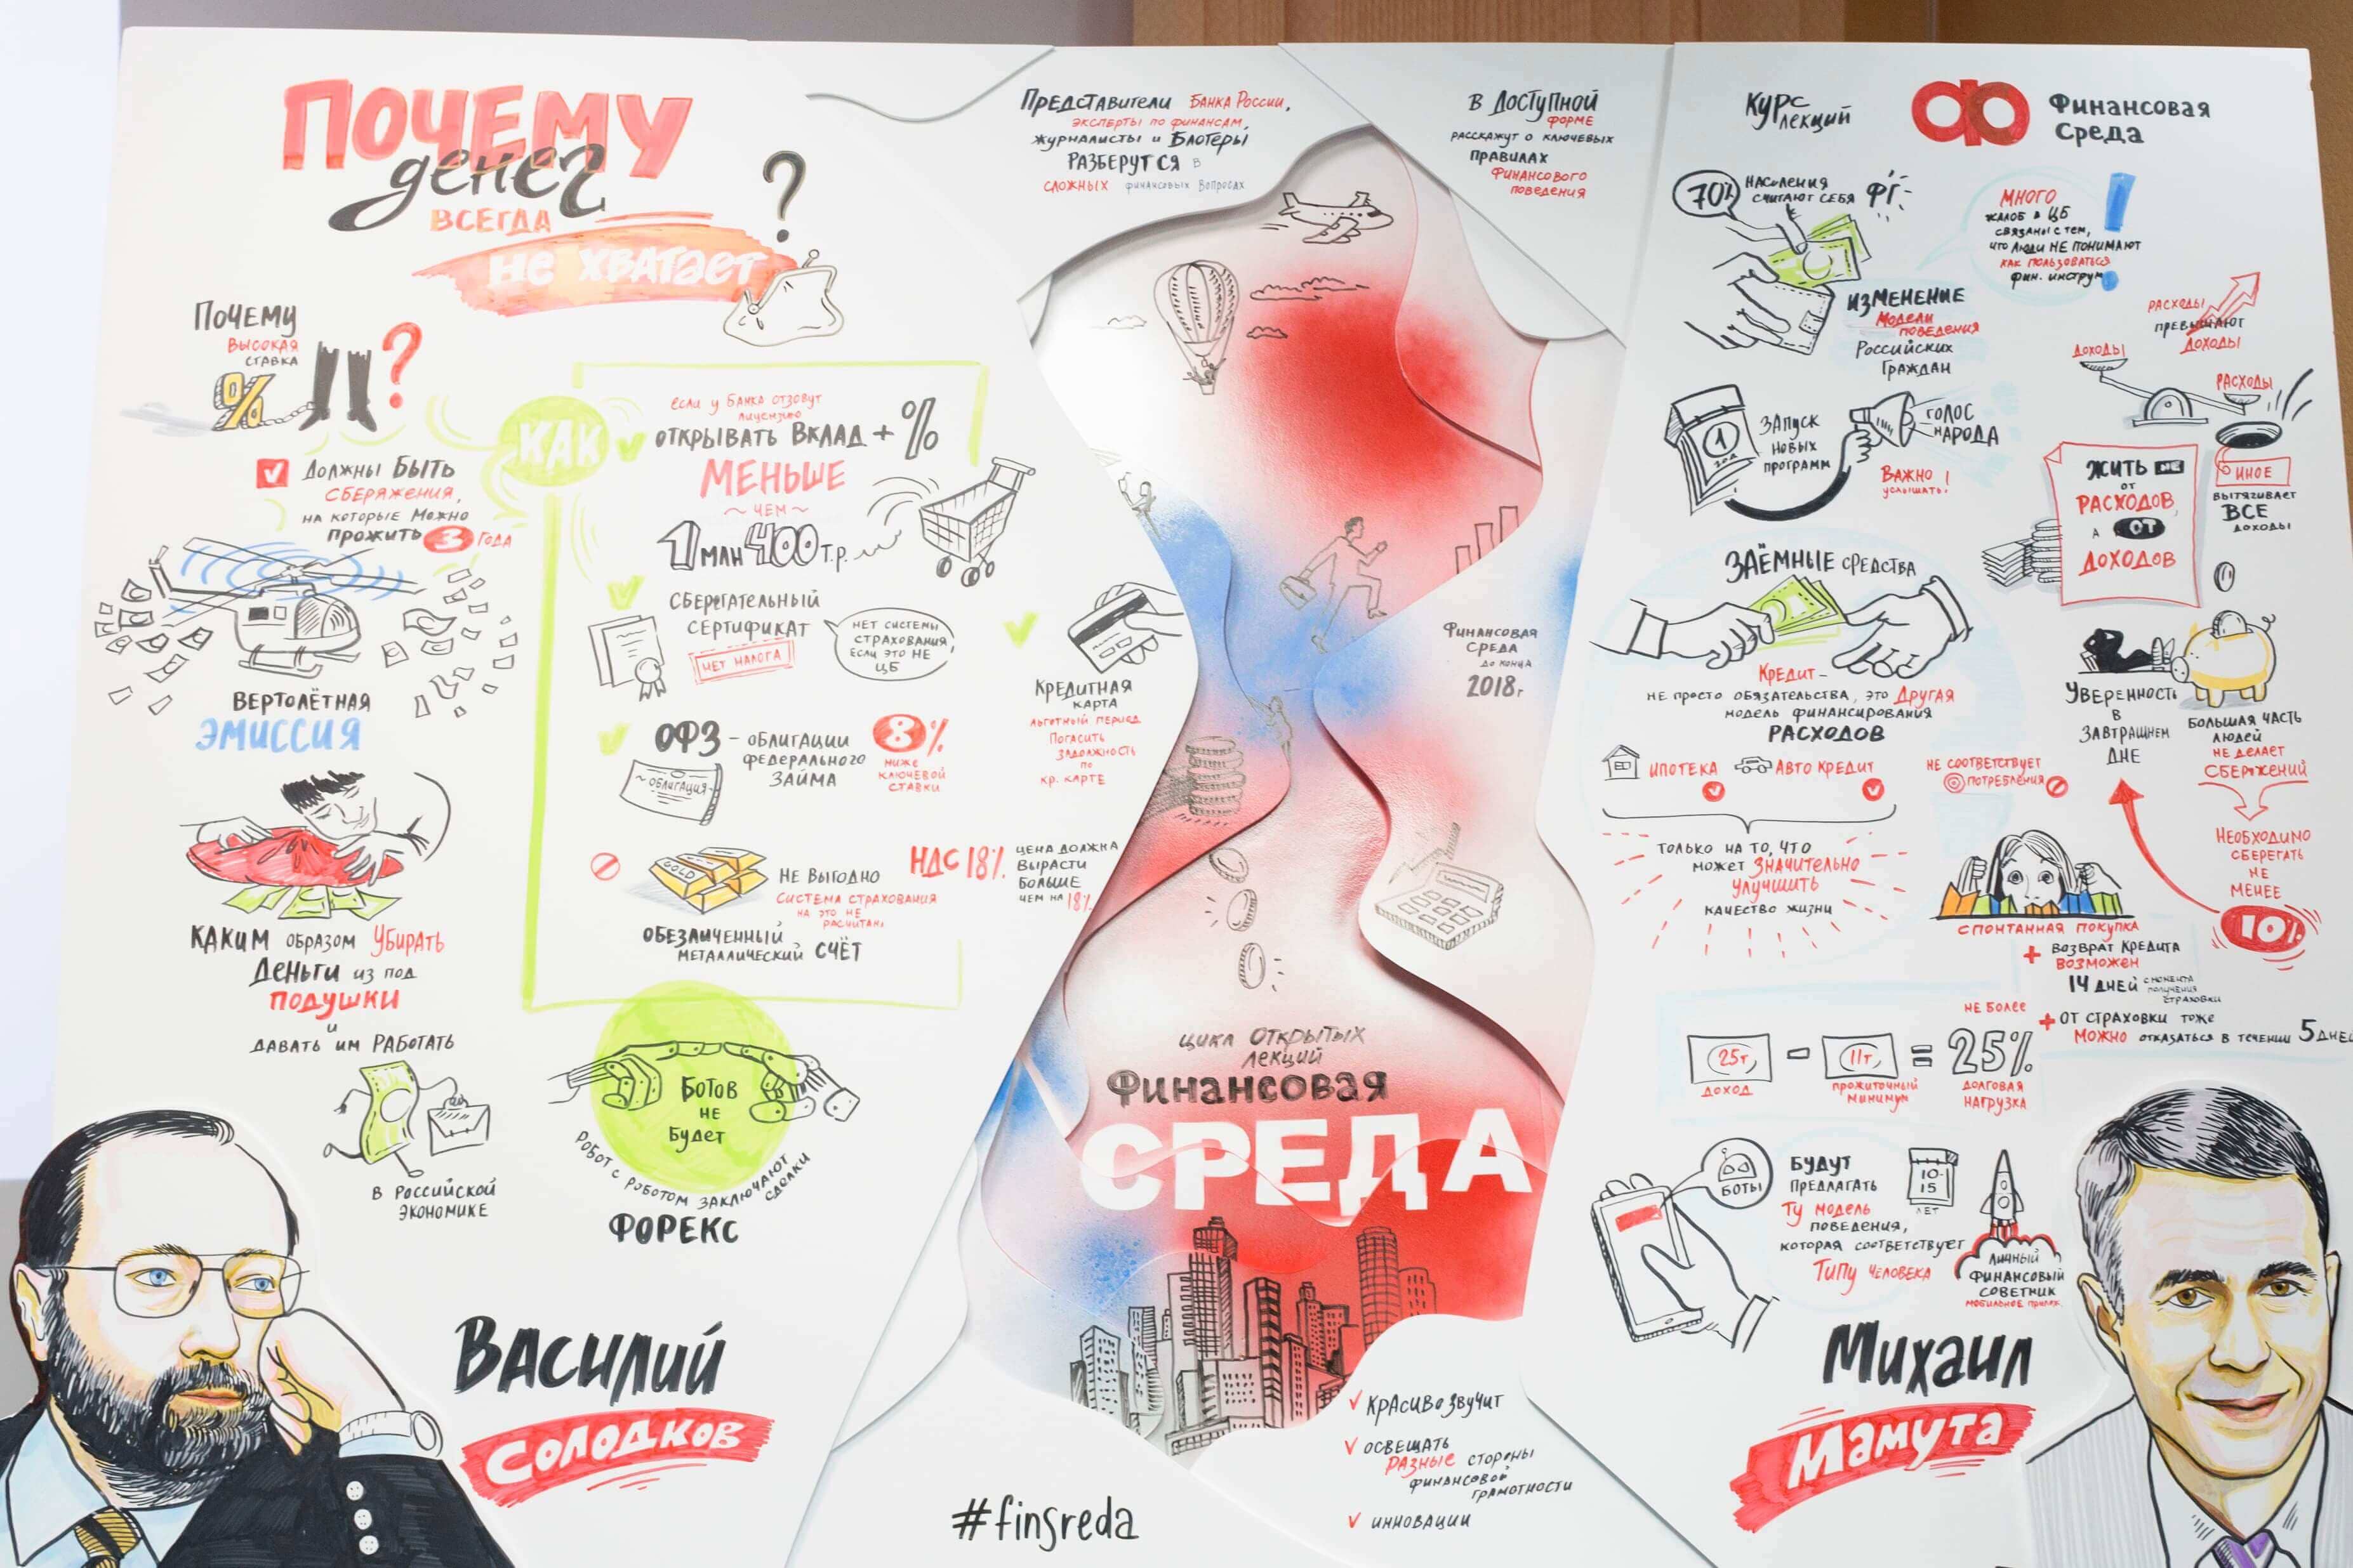 ПОЧЕМУ
денег
ВСЕГДА
НЕ ХВАТАЕТ
?
ПОЧЕМУ
ВЫСОКАЯ
СТАВКА
%
?
ДОЛЖНЫ БЫТЬ
СБЕРЯЖЕНИЯ,
НА КОТОРЫЕ МОЖНО
ПРОЖИТЬ 3 ГОДА
ВЕРТОЛЁТНАЯ
ЭМИССИЯ
КАКИМ ОБРАЗОМ УБИРАТЬ
ДЕНЬГИ ИЗ ПОД
ПОДУШКИ
И
ДАВАТЬ ИМ РАБОТАТЬ
В РОССИЙСКОЙ
ЭКОНОМИКЕ
КАК
ЕСЛИ У БАНКА ОТЗОВУТ
ЛИЦЕНЗИЮ
ОТКРЫВАТЬ ВКЛАД + %
МЕНЬШЕ
~ ЧЕМ ~
1 МЛН 400 Т.Р.
СБЕРЕГАТЕЛЬНЫЙ
СЕРТИФИКАТ
НЕТ НАЛОГА
НЕТ СИСТЕМЫ
СТРАХОВАНИЯ,
ЕСЛИ ЭТО НЕ
ЦБ
ОФЗ - ОБЛИГАЦИИ
ФЕДЕРАЛЬНОГО
ЗАЙМА
8%
НИЖЕ
КЛЮЧЕВОЙ
СТАВКИ
-ОБЛИГАЦИЯ-
КРЕДИТНАЯ
КАРТА
ЛЬГОТНЫЙ ПЕРИОД
ПОГАСИТЬ
ЗАДОЛЖНОСТЬ
ПО
КР. КАРТЕ
GOLD
НЕ ВЫГОДНО
СИСТЕМА СТРАХОВАНИЯ
НА ЭТО НЕ
РАСЧИТАНА
ОБЕЗЛИЧЕННЫЙ
МЕТАЛЛИЧЕСКИЙ СЧЁТ
НДС 18%
ЦЕНА ДОЛЖНА
ВЫРАСТИ
БОЛЬШЕ
ЧЕМ НА 18%
БОТОВ
НЕ
БУДЕТ
РОБОТ С РОБОТОМ ЗАКЛЮЧАЮТ СДЕЛКИ
ФОРЕКС
ВАСИЛИЙ
СОЛОДКОВ
ПРЕДСТАВИТЕЛИ БАНКА РОССИИ,
ЭКСПЕРТЫ ПО ФИНАНСАМ,
ЖУРНАЛИСТЫ И БЛОГЕРЫ
РАЗБЕРУТСЯ В
СЛОЖНЫХ ФИНАНСОВЫХ ВОПРОСАХ
В ДОСТУПНОЙ
ФОРМЕ
РАССКАЖУТ О КЛЮЧЕВЫХ
ПРАВИЛАХ
ФИНАНСОВОГО
ПОВЕДЕНИЯ
ФИНАНСОВАЯ
СРЕДА
ДО КОНЦА
2018г
ЦИКЛ ОТКРЫТЫХ
ЛЕКЦИЙ
ФИНАНСОВАЯ
СРЕДА
КРАСИВО ЗВУЧИТ
ОСВЕЩАТЬ
РАЗНЫЕ СТОРОНЫ
ФИНАНСОВОЙ
ГРАМОТНОСТИ
ИННОВАЦИИ
#finsreda
КУРС
ЛЕКЦИЙ
ФИНАНСОВАЯ
СРЕДА
70%
НАСЕЛЕНИЯ
СЧИТАЮТ СЕБЯ ФГ
МНОГО
ЖАЛОБ В ЦБ
СВЯЗАНЫ С ТЕМ,
ЧТО ЛЮДИ НЕ ПОНИМАЮТ
КАК ПОЛЬЗОВАТЬСЯ
ФИН. ИНСТРУМ
ИЗМЕНЕНИЕ
МОДЕЛИ
ПОВЕДЕНИЯ
РОССИЙСКИХ
ГРАЖДАН
РАСХОДЫ
ПРЕВЫШАЮТ
ДОХОДЫ
ДОХОДЫ
РАСХОДЫ
1
ЗАПУСК
НОВЫХ
ПРОГРАММ
ГОЛОС
НАРОДА
ВАЖНО
УСЛЫШАТЬ!
ЖИТЬ НЕ
ОТ
РАСХОДОВ,
А ОТ
ДОХОДОВ
ИНОЕ
ВЫТЯГИВАЕТ
ВСЕ
ДОХОДЫ
ЗАЁМНЫЕ СРЕДСТВА
КРЕДИТ -
НЕ ПРОСТО ОБЯЗАТЕЛЬСТВА, ЭТО ДРУГАЯ
МОДЕЛЬ ФИНАНСИРОВАНИЯ
РАСХОДОВ
ИПОТЕКА
АВТО КРЕДИТ
НЕ СООТВЕТСТВУЕТ
ПОТРЕБЛЕНИЯ
ТОЛЬКО НА ТО, ЧТО
МОЖЕТ ЗНАЧИТЕЛЬНО
УЛУЧШИТЬ
КАЧЕСТВО ЖИЗНИ
УВЕРЕННОСТЬ
В
ЗАВТРАШНЕМ
ДНЕ
БОЛЬШАЯ ЧАСТЬ
ЛЮДЕЙ
НЕ ДЕЛАЕТ
СБЕРЕЖЕНИЙ
НЕОБХОДИМО
СБЕРЕГАТЬ
НЕ
МЕНЕЕ
10%
СПОНТАННАЯ ПОКУПКА
+ ВОЗВРАТ КРЕДИТА
ВОЗМОЖЕН
14 ДНЕЙ С МОМЕНТА
ПОЛУЧЕНИЯ
СТРАХОВКИ
+ ОТ СТРАХОВКИ ТОЖЕ
МОЖНО ОТКАЗАТЬСЯ В ТЕЧЕНИИ 5 ДНЕЙ
НЕ БОЛЕЕ
25т - 11т = 25%
ДОХОД
ПРОЖИТОЧНЫЙ
МИНИМУМ
ДОЛГОВАЯ
НАГРУЗКА
БОТЫ
БУДУТ
ПРЕДЛАГАТЬ
ТУ МОДЕЛЬ
ПОВЕДЕНИЯ,
КОТОРАЯ СООТВЕТСТВУЕТ
ТИПУ ЧЕЛОВЕКА
10-
15
ЛЕТ
ЛИЧНЫЙ
ФИНАНСОВЫЙ
СОВЕТНИК
МОБИЛЬНОЕ
МИХАИЛ
МАМУТА